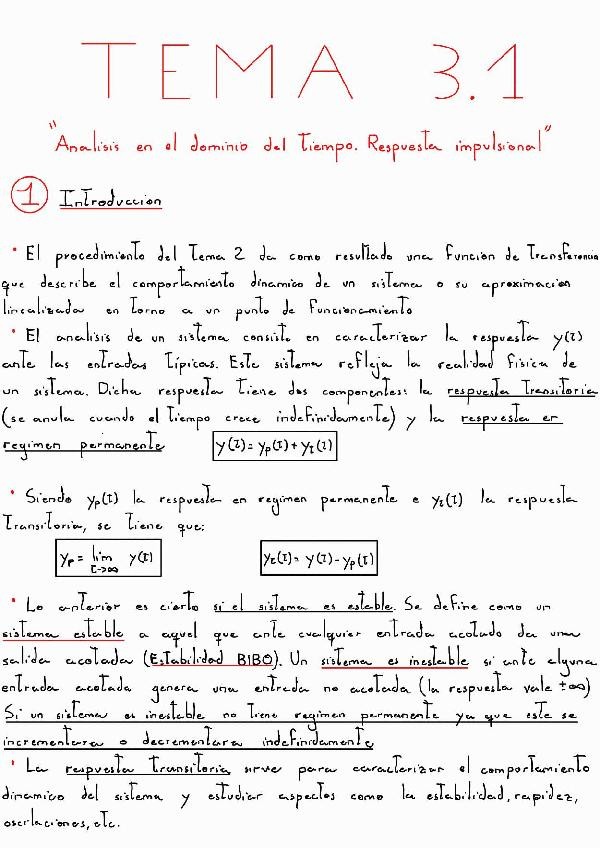 TEMA 3.1
"Analisis en el dominio del tiempo. Respuesta impulsional"
1 Introduccion
· El procedimiento del Tema 2 da como resultado una funcion de transferencia
que describe el comportamiento dinamico de un sistema o su aproximacion
linealizada en torno a un punto de funcionamiento
· El analisis de un sistema consiste en caracterizar la respuesta y(t)
ante las entradas típicas. Este sistema refleja la realidad física de
un sistema. Dicha respuesta tiene dos componentes: la respuesta transitoria
(se anula cuando el tiempo crece indefinidamente) y la respuesta en
regimen permanente y(t) = yp(t) + yt(t)
· Siendo yp(t) la respuesta en regimen permanente e yt(t) la respuesta
transitoria, se tiene que:
yp = lim t->∞ y(t) yt(t) = y(t) - yp(t)
· Lo anterior es cierto si el sistema es estable. Se define como un
sistema estable a aquel que ante cualquier entrada acotada da una
salida acotada (Estabilidad BIBO). Un sistema es inestable si ante alguna
entrada acotada genera una entrada no acotada (la respuesta vale ±∞)
Si un sistema es inestable no tiene regimen permanente ya que este se
incrementara o decrementara indefinidamente
· La respuesta transitoria sirve para caracterizar el comportamiento
dinamico del sistema y estudiar aspectos como la estabilidad, rapidez,
oscilaciones, etc.